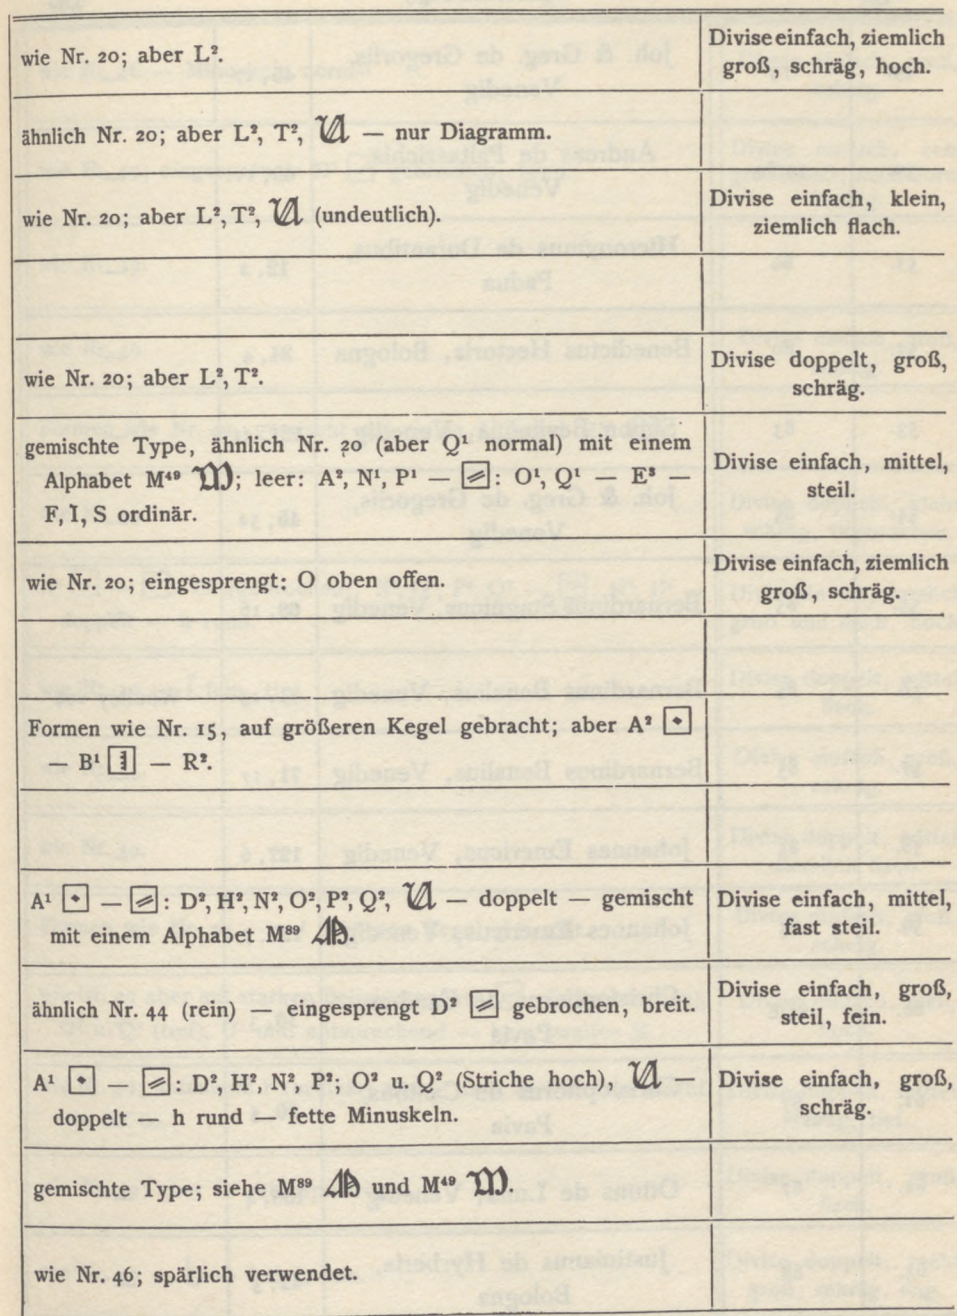 wie Nr. 20; aber L².
Divise einfach, ziemlich
groß, schräg, hoch.
ähnlich Nr. 20; aber L², T², 𝔄 — nur Diagramm.
wie Nr. 20; aber L², T², 𝔄 (undeutlich).
Divise einfach, klein,
ziemlich flach.
wie Nr. 20; aber L², T².
Divise doppelt, groß,
schräg.
gemischte Type, ähnlich Nr. 20 (aber Q¹ normal) mit einem
Alphabet M⁴⁹ 𝔐; leer: A², N¹, P¹ — : O¹, Q¹ — E³ —
F, I, S ordinär.
Divise einfach, mittel,
steil.
wie Nr. 20; eingesprengt: O oben offen.
Divise einfach, ziemlich
groß, schräg.
Formen wie Nr. 15, auf größeren Kegel gebracht; aber A²
— B¹ — R².
A¹ — : D², H², N², O², P², Q², 𝔄 — doppelt — gemischt
mit einem Alphabet M⁸⁹ .
Divise einfach, mittel,
fast steil.
ähnlich Nr. 44 (rein) — eingesprengt D² gebrochen, breit.
Divise einfach, groß,
steil, fein.
A¹ — : D², H², N², P²; O² u. Q² (Striche hoch), 𝔄 —
doppelt — h rund — fette Minuskeln.
Divise einfach, groß,
schräg.
gemischte Type; siehe M⁸⁹ und M⁴⁹ 𝔐.
wie Nr. 46; spärlich verwendet.